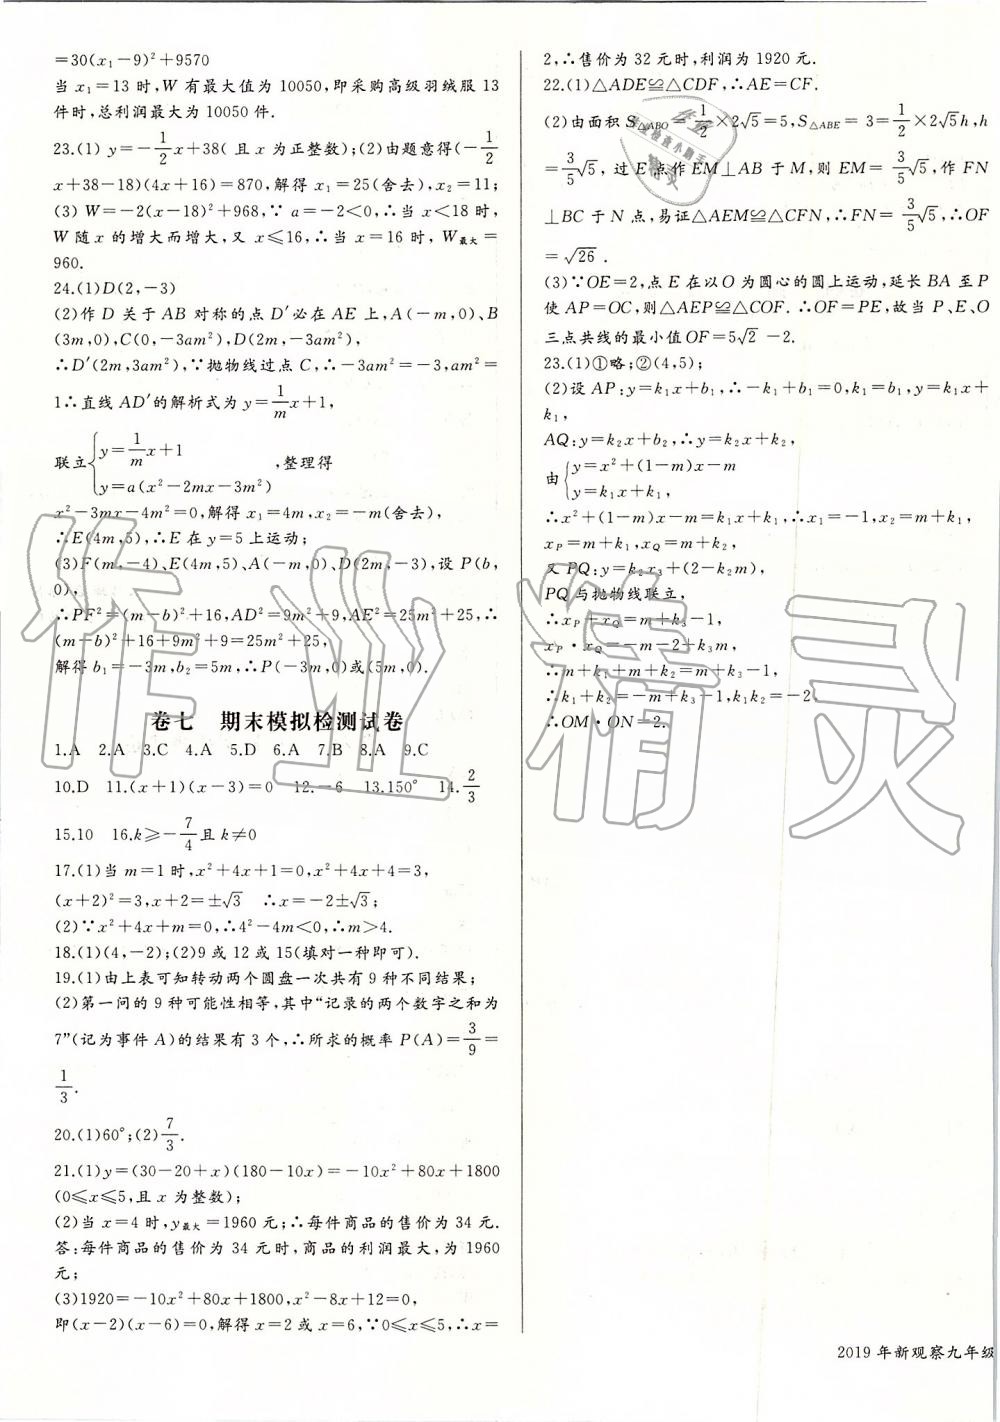 =30(x₁-9)²+9570
当 x₁=13 时,W 有最大值为 10050,即采购高级羽绒服 13
件时,总利润最大为 10050 件.
23.(1) y=-1/2x+38(且 x 为正整数);(2)由题意得(-1/2
x+38-18)(4x+16)=870,解得 x₁=25(舍去),x₂=11;
(3) W=-2(x-18)²+968,∵ a=-2<0,∴当 x<18 时,
W 随 x 的增大而增大,又 x≤16,∴当 x=16 时,W最大=
960.
24.(1)D(2,-3)
(2)作 D 关于 AB 对称的点 D′必在 AE 上,A(-m,0)、B
(3m,0),C(0,-3am²),D(2m,-3am²),
∴D′(2m,3am²),∵抛物线过点 C,∴-3am²=-3,am²=
1∴直线 AD′的解析式为 y=1/m x+1,
联立{y=1/m x+1
y=a(x²-2mx-3m²) ,整理得
x²-3mx-4m²=0,解得 x₁=4m,x₂=-m(舍去),
∴E(4m,5),∴E 在 y=5 上运动;
(3)F(m,-4)、E(4m,5)、A(-m,0)、D(2m,-3),设 P(b,
0),
∴PF²=(m-b)²+16,AD²=9m²+9,AE²=25m²+25,∴
(m-b)²+16+9m²+9=25m²+25,
解得 b₁=-3m,b₂=5m,∴P(-3m,0)或(5m,0).
卷七 期末模拟检测试卷
1.A 2.A 3.C 4.A 5.D 6.A 7.B 8.A 9.C
10.D 11.(x+1)(x-3)=0 12.-6 13.150° 14.2/3
15.10 16.k≥-7/4且 k≠0
17.(1)当 m=1 时,x²+4x+1=0,x²+4x+4=3,
(x+2)²=3,x+2=±√3 ∴x=-2±√3.
(2)∵x²+4x+m=0,∴4²-4m<0,∴m>4.
18.(1)(4,-2);(2)9 或 12 或 15(填对一种即可).
19.(1)由上表可知转动两个圆盘一次共有 9 种不同结果;
(2)第一问的 9 种可能性相等,其中“记录的两个数字之和为
7”(记为事件 A)的结果有 3 个,∴所求的概率 P(A)=3/9=
1/3.
20.(1)60°;(2)7/3.
21.(1)y=(30-20+x)(180-10x)=-10x²+80x+1800
(0≤x≤5,且 x 为整数);
(2)当 x=4 时,y最大=1960 元;∴每件商品的售价为 34 元.
答:每件商品的售价为 34 元时,商品的利润最大,为 1960
元;
(3)1920=-10x²+80x+1800,x²-8x+12=0,
即(x-2)(x-6)=0,解得 x=2 或 x=6,∵0≤x≤5,∴x=
2,∴售价为 32 元时,利润为 1920 元.
22.(1)△ADE≌△CDF,∴AE=CF.
(2)由面积 S△ABO=1/2×2√5=5,S△ABE=3=1/2×2√5h,h
=3/5√5,过 E 点作 EM⊥AB 于 M,则 EM=3/5√5,作 FN
⊥BC 于 N 点,易证△AEM≌△CFN,∴FN=3/5√5,∴OF
=√26.
(3)∵OE=2,点 E 在以 O 为圆心的圆上运动,延长 BA 至 P
使 AP=OC,则△AEP≌△COF.∴OF=PE,故当 P、E、O
三点共线的最小值 OF=5√2-2.
23.(1)①略;②(4,5);
(2)设 AP:y=k₁x+b₁,∴-k₁+b₁=0,k₁=b₁,y=k₁x+
k₁,
AQ:y=k₂x+b₂,∴y=k₂x+k₂,
由{y=x²+(1-m)x-m
y=k₁x+k₁,
∴x²+(1-m)x-m=k₁x+k₁,∴x₁=-1,x₂=m+k₁,
xP=m+k₁,xQ=m+k₂,
又 PQ:y=k₃x₃+(2-k₃m),
PQ 与抛物线联立,
∴xP+xQ=m+k₃-1,
xP·xQ=-m-2+k₃m,
∴m+k₁+m+k₂=m+k₃-1,
∴k₁+k₂=-m+k₃-1,k₁k₂=-2,
∴OM·ON=2.
2019 年新观察九年级
作业精灵